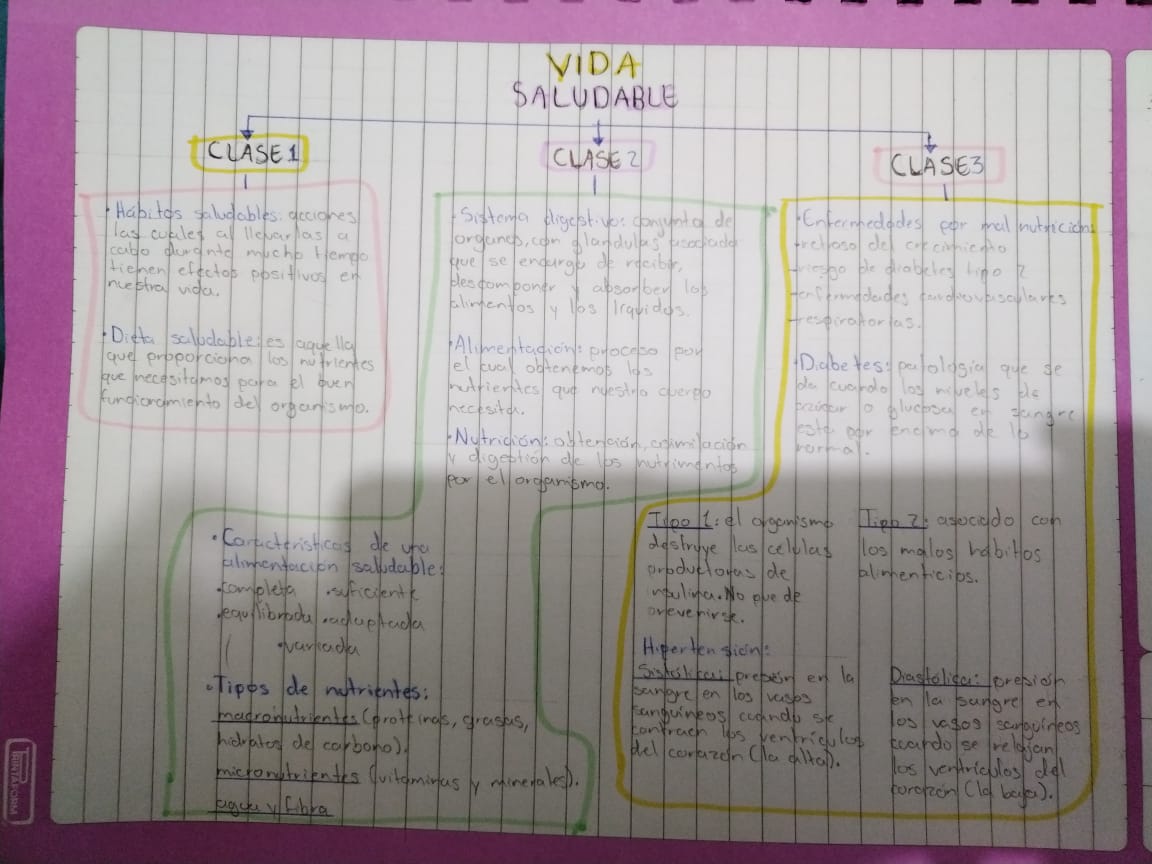 VIDA
SALUDABLE
CLASE 1
• Hábitos saludables: acciones
las cuales al llevarlas a
cabo durante mucho tiempo
tienen efectos positivos en
nuestra vida.
• Dieta saludable: es aquella
que proporciona los nutrientes
que necesitamos para el buen
funcionamiento del organismo.
CLASE 2
• Sistema digestivo: conjunto de
organos, con glandulas asociada
que se encarga de recibir,
descomponer y absorber los
alimentos y los líquidos.
• Alimentación: proceso por
el cual obtenemos los
nutrientes que nuestro cuerpo
necesita.
• Nutrición: obtención, asimilación
y digestión de los nutrimentos
por el organismo.
• Características de una
alimentación saludable:
• completa • suficiente
• equilibrada • adaptada
• variada
• Tipos de nutrientes:
macronutrientes (proteinas, grasas,
hidratos de carbono).
micronutrientes (vitaminas y minerales).
agua y fibra
CLASE 3
• Enfermedades por mal nutrición:
- retraso del crecimiento
- riesgo de diabetes tipo 2
- enfermedades cardiovasculares
- respiratorias.
• Diabetes: patología que se
da cuando los niveles de
azúcar o glucosa en sangre
esta por encima de lo
normal.
Tipo 1: el organismo
destruye las celulas
productoras de
insulina. No puede
prevenirse.
Tipo 2: asociado con
los malos hábitos
alimenticios.
Hipertensión:
presión en la
sangre en los vasos
sanguíneos cuando se
contraen los ventrículos
del corazón (la alta).
Diastólica: presión
en la sangre en
los vasos sanguíneos
cuando se relajan
los ventrículos del
corazón (la baja).
PRINTAFORM